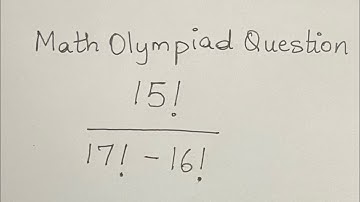 Math Olympiad Question
15!
17! - 16!